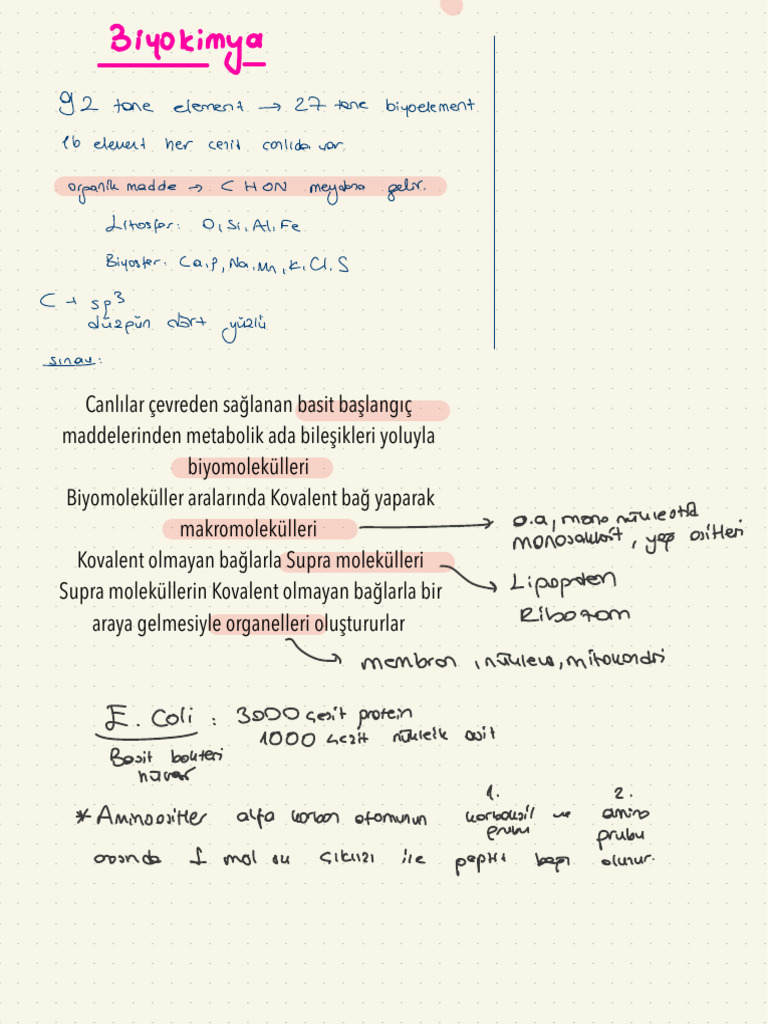 Biyokimya
92 tane element → 27 tane biyoelement
16 element her çeşit canlıda var.
organik madde → C HON meydana gelir.
Litosfer: O, Si, Al, Fe
Biyosfer: Ca, P, Na, Mn, K, Cl, S
C → sp3
düzgün dört yüzlü
sınav:
Canlılar çevreden sağlanan basit başlangıç
maddelerinden metabolik ada bileşikleri yoluyla
biyomolekülleri
Biyomoleküller aralarında Kovalent bağ yaparak
makromolekülleri
a.a, mono nükleotid
monosakkarit, yağ asitleri
Kovalent olmayan bağlarla Supra molekülleri
Lipoprotein
Ribozom
Supra moleküllerin Kovalent olmayan bağlarla bir
araya gelmesiyle organelleri oluştururlar
membran, nükleus, mitokondri
E. Coli : 3000 çeşit protein
1000 çeşit nükleik asit
Basit bakteri
* Aminoasitler alfa karbon atomunun 1. karboksil grubu ve 2. amino grubu
arasında 1 mol su çıkışı ile peptit bağı oluşur.